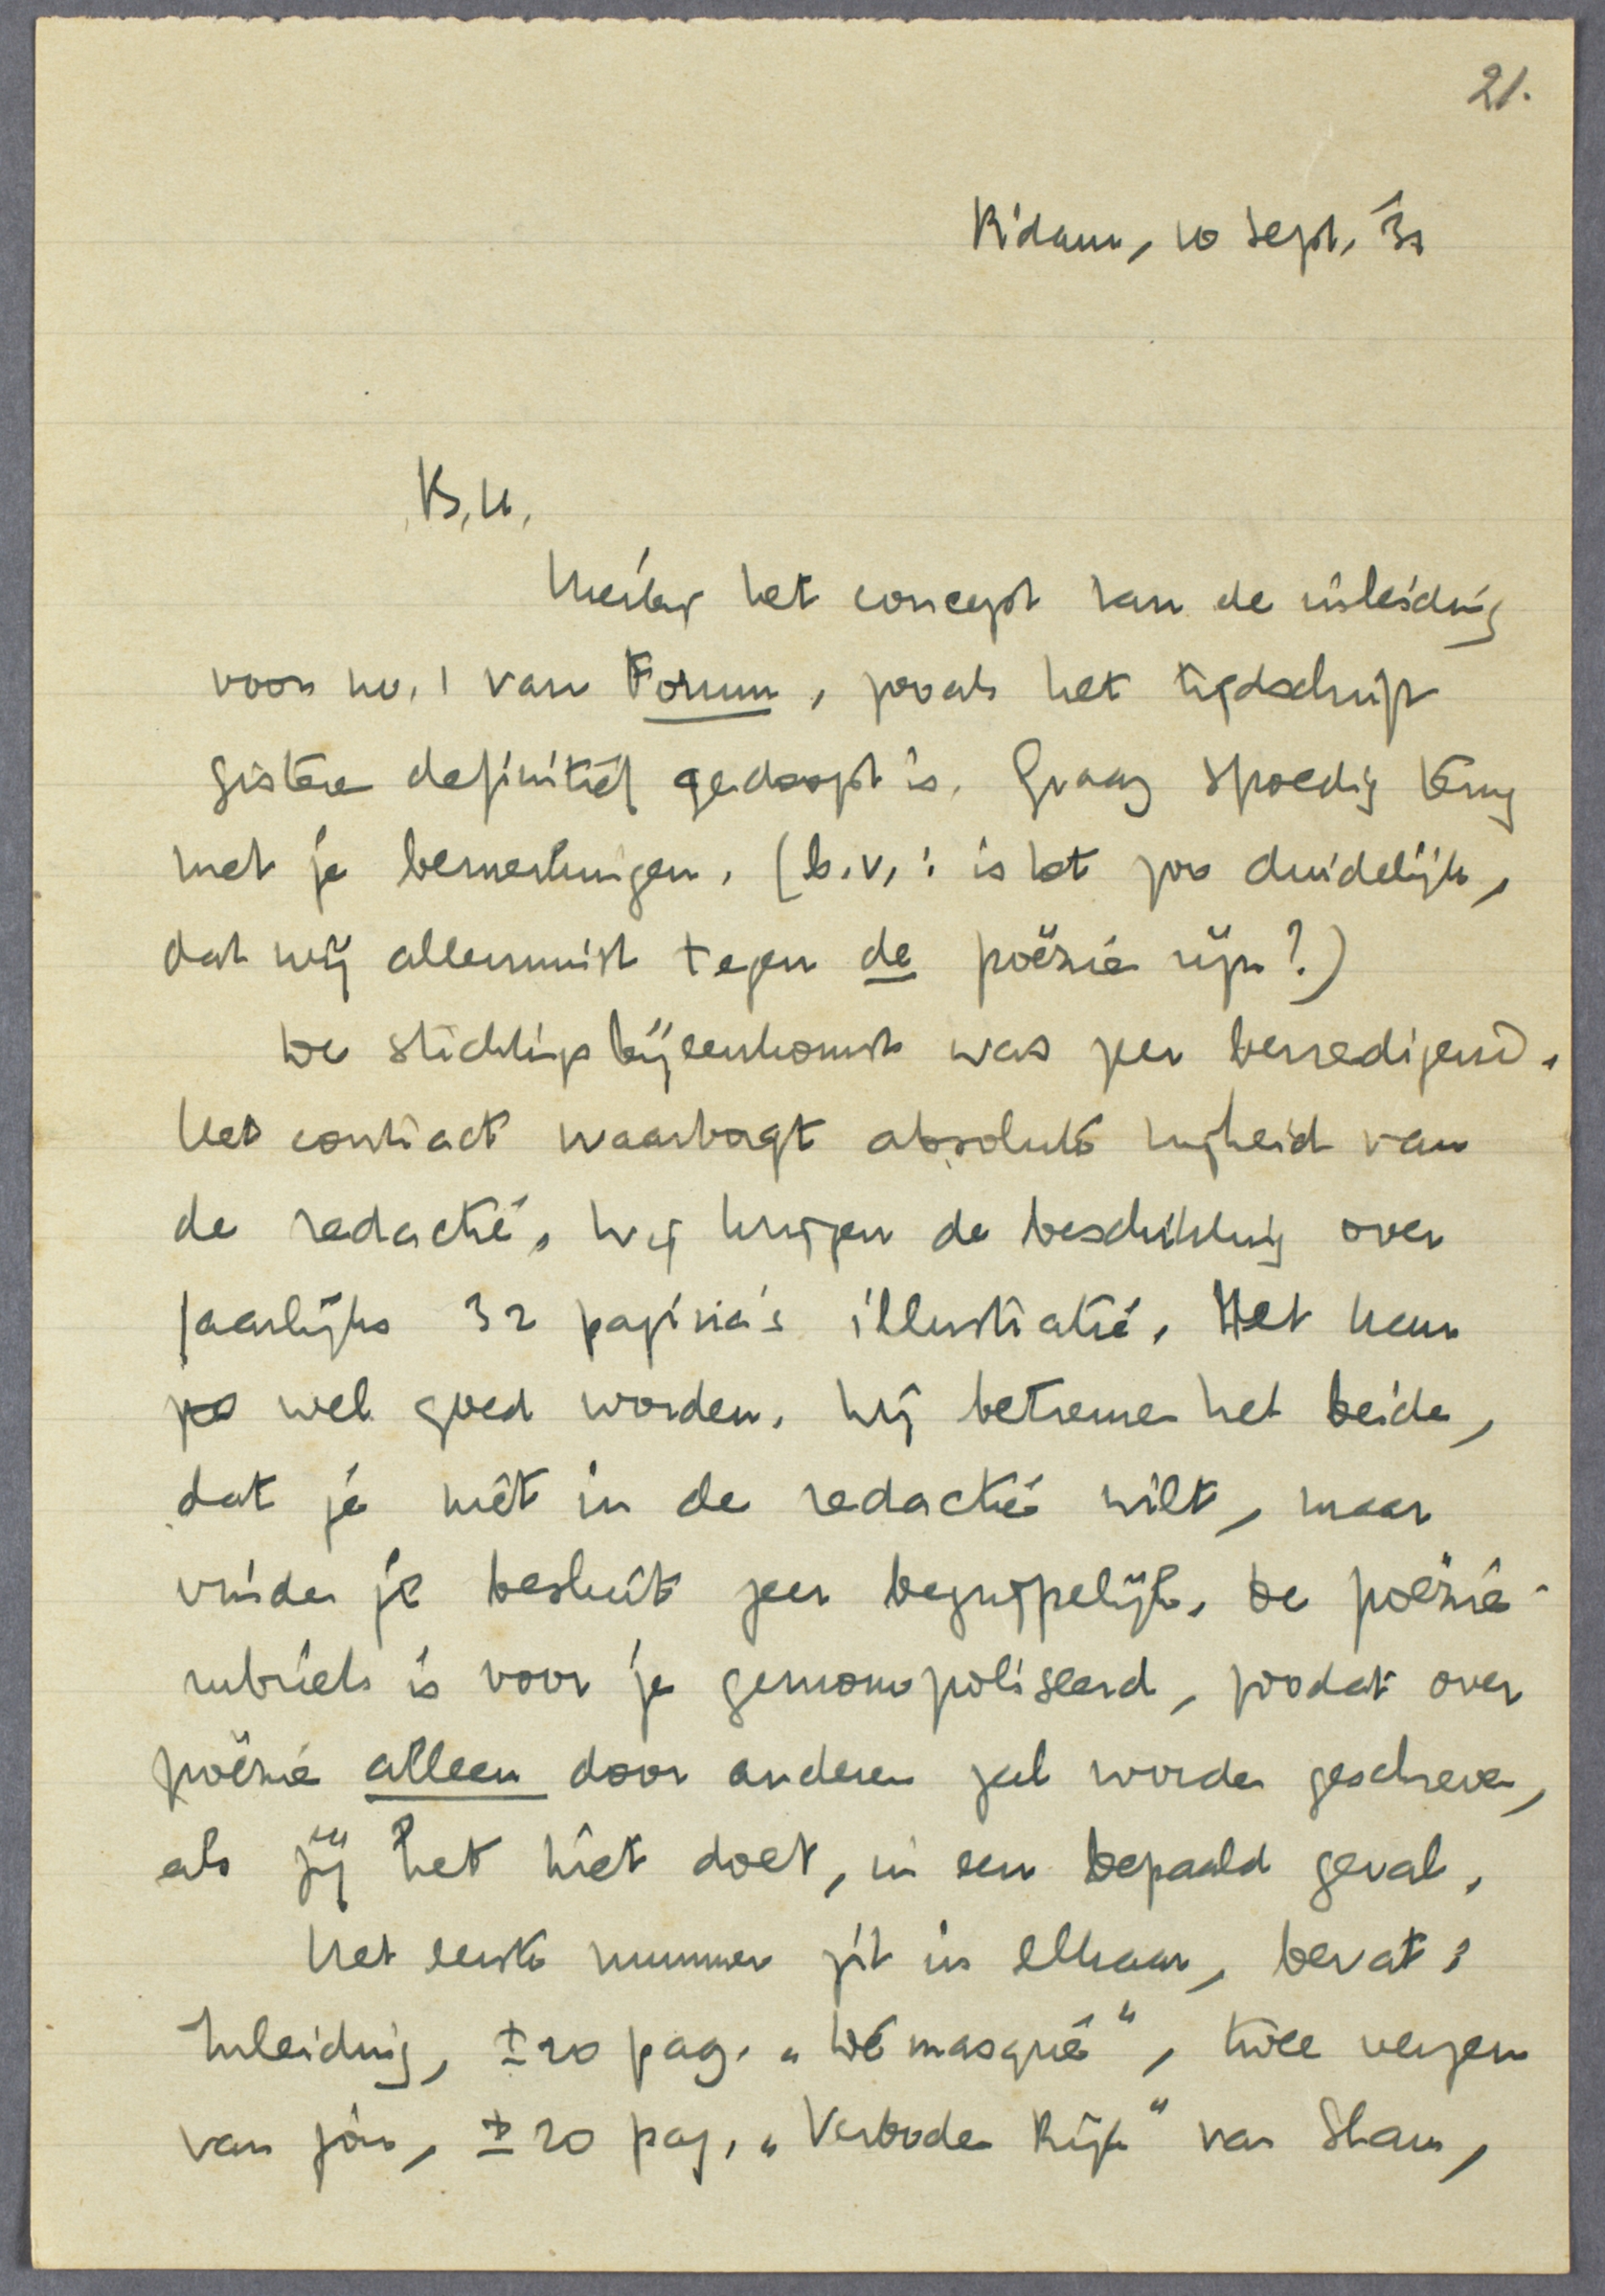 21.
R'dam, 10 Sept. '31
B.H.
Hierbij het concept van de inleiding
voor no. 1 van Forum, zooals het tijdschrift
gisteren definitief gedoopt is. Graag spoedig terug
met je bemerkingen. (b.v.: is het zoo duidelijk,
dat wij allerminst tegen de poëzie zijn?)
De stichtingsbijeenkomst was zeer bevredigend.
Het contract waarborgt absolute vrijheid van
de redactie. Wij krijgen de beschikking over
jaarlijks 32 pagina's illustratie. Het kan
zoo wel goed worden. Wij betreuren het beide,
dat je niet in de redactie wilt, maar
vinden je besluit zeer begrijpelijk. De poëzie-
rubriek is voor je gemonopoliseerd, zoodat over
poëzie alleen door anderen zal worden geschreven,
als jij het niet doet, in een bepaald geval.
Het eerste nummer zit in elkaar, bevat:
Inleiding, ± 20 pag. „Démasqué", twee verzen
van jou, ± 20 pag. „Verboden Rijk" van Slau,